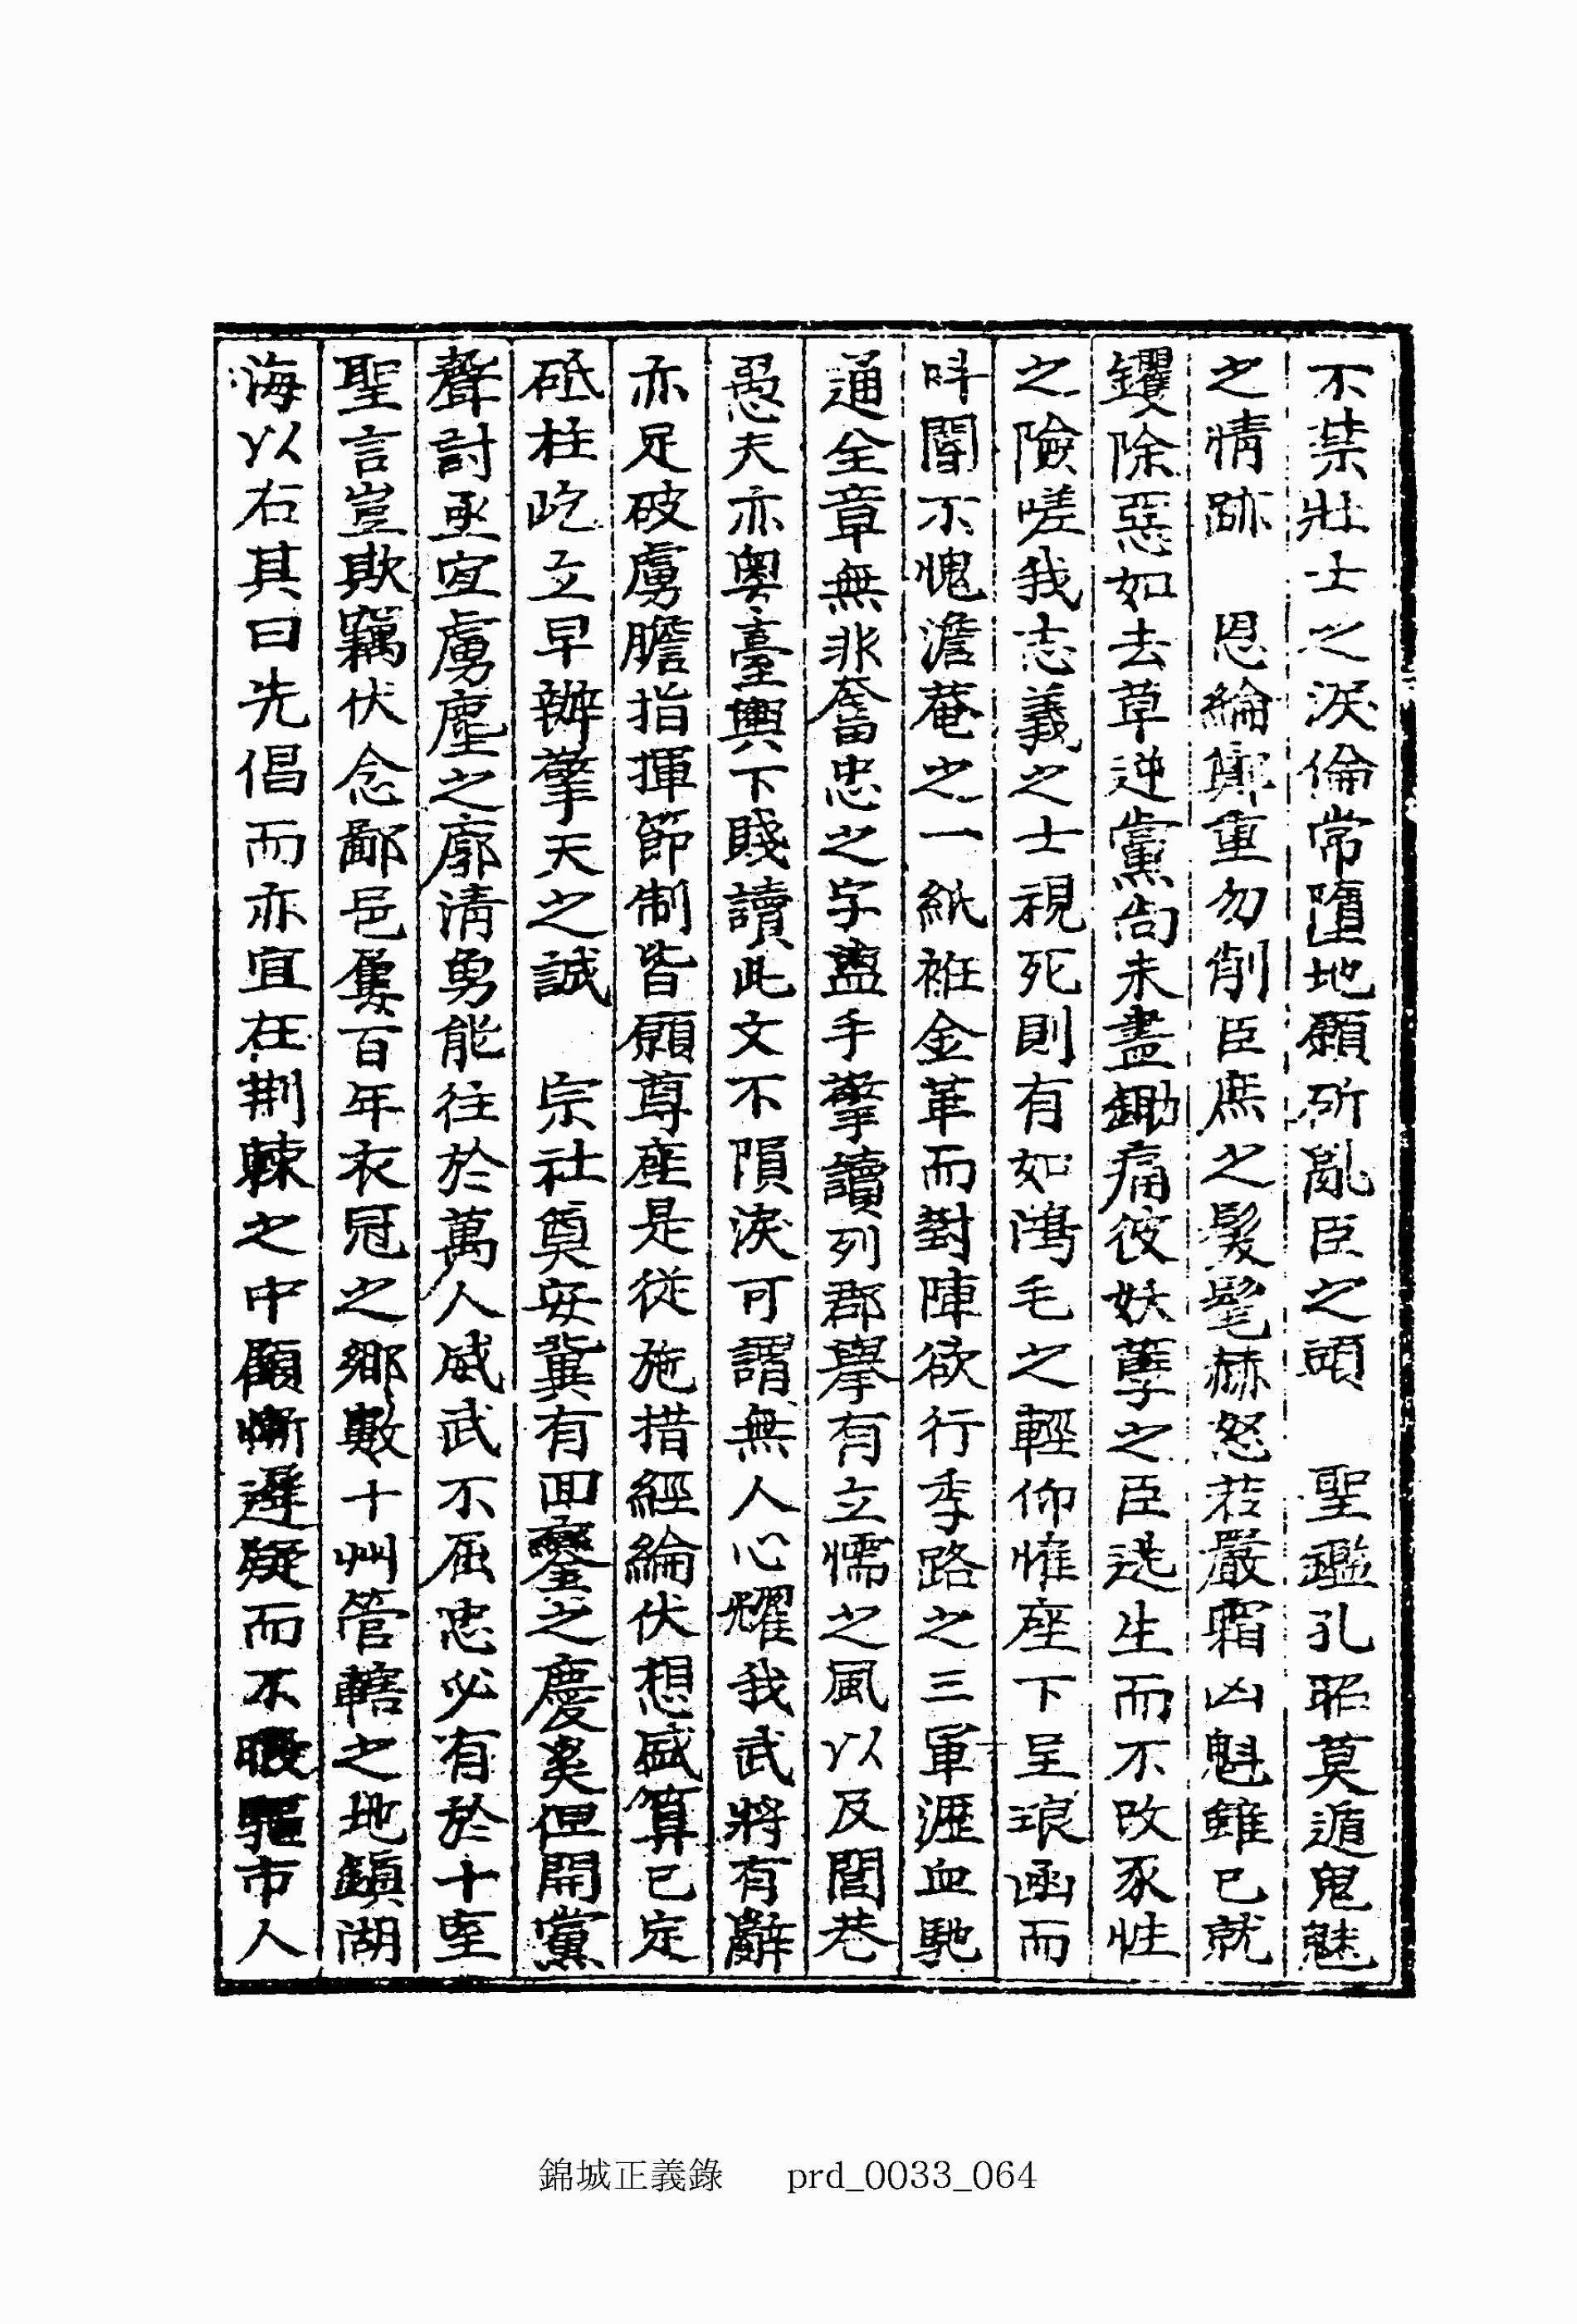 不禁壯士之淚倫常墮地願斫亂臣之頭　聖鑑孔昭莫遁鬼魅
之情跡　恩綸鄭重勿削臣庶之髮髦赫怒若嚴霜凶魁雖已就
钁除惡如去草逆黨尙未盡鋤痛彼妖孽之臣逃生而不改豕性
之險嗟我志義之士視死則有如鴻毛之輕仰惟座下呈琅函而
叫閽不愧澹菴之一紙袵金革而對陣欲行季路之三軍瀝血馳
通全章無非奮忠之字盥手擎讀列郡擧有立懦之風以及閭巷
愚夫亦粤臺輿下賤讀此文不隕淚可謂無人心耀我武將有辭
亦足破虜膽指揮節制皆願尊座是從施措經綸伏想盛算已定
砥柱屹立早辦擎天之誠　宗社奠安冀有回鑾之慶奚但開黨
聲討亟宜虜塵之廓淸勇能往於萬人威武不屈忠必有於十室
聖言豈欺竊伏念鄙邑屢百年衣冠之鄕數十州管轄之地鎭湖
海以右其曰先倡而亦宜在荆棘之中顧慚遲疑而不暇驅市人